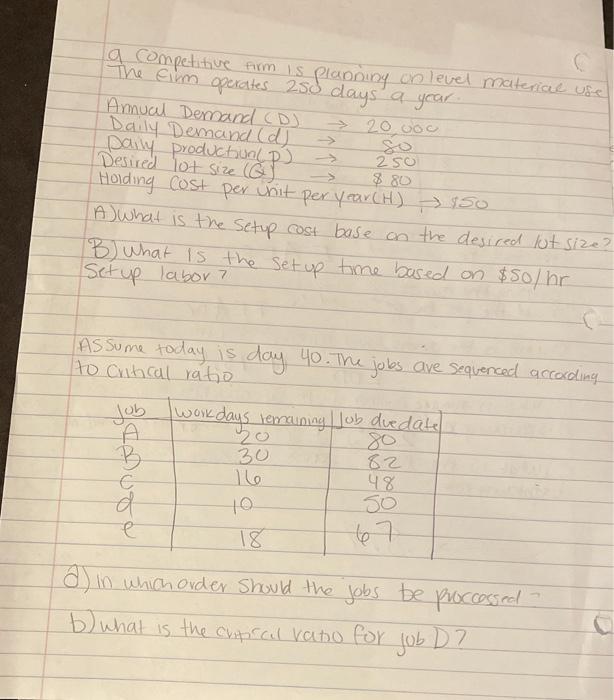 a competitive firm is planning on level material use
The firm operates 250 days a year.
Annual Demand (D) → 20,000
Daily Demand (d) → 80
Daily production(p) → 250
Desired lot size (Q) → $ 80
Holding Cost per unit per year (H) → $50
A) What is the setup cost base on the desired lot size?
B) What is the setup time based on $50/hr
Setup labor?
Assume today is day 40. The jobs are sequenced according
to critical ratio
Job workdays remaining Job due date
A 20 80
B 30 82
C 16 48
d 10 50
e 18 67
a) in which order should the jobs be proccessed
b) what is the critical ratio for job D?